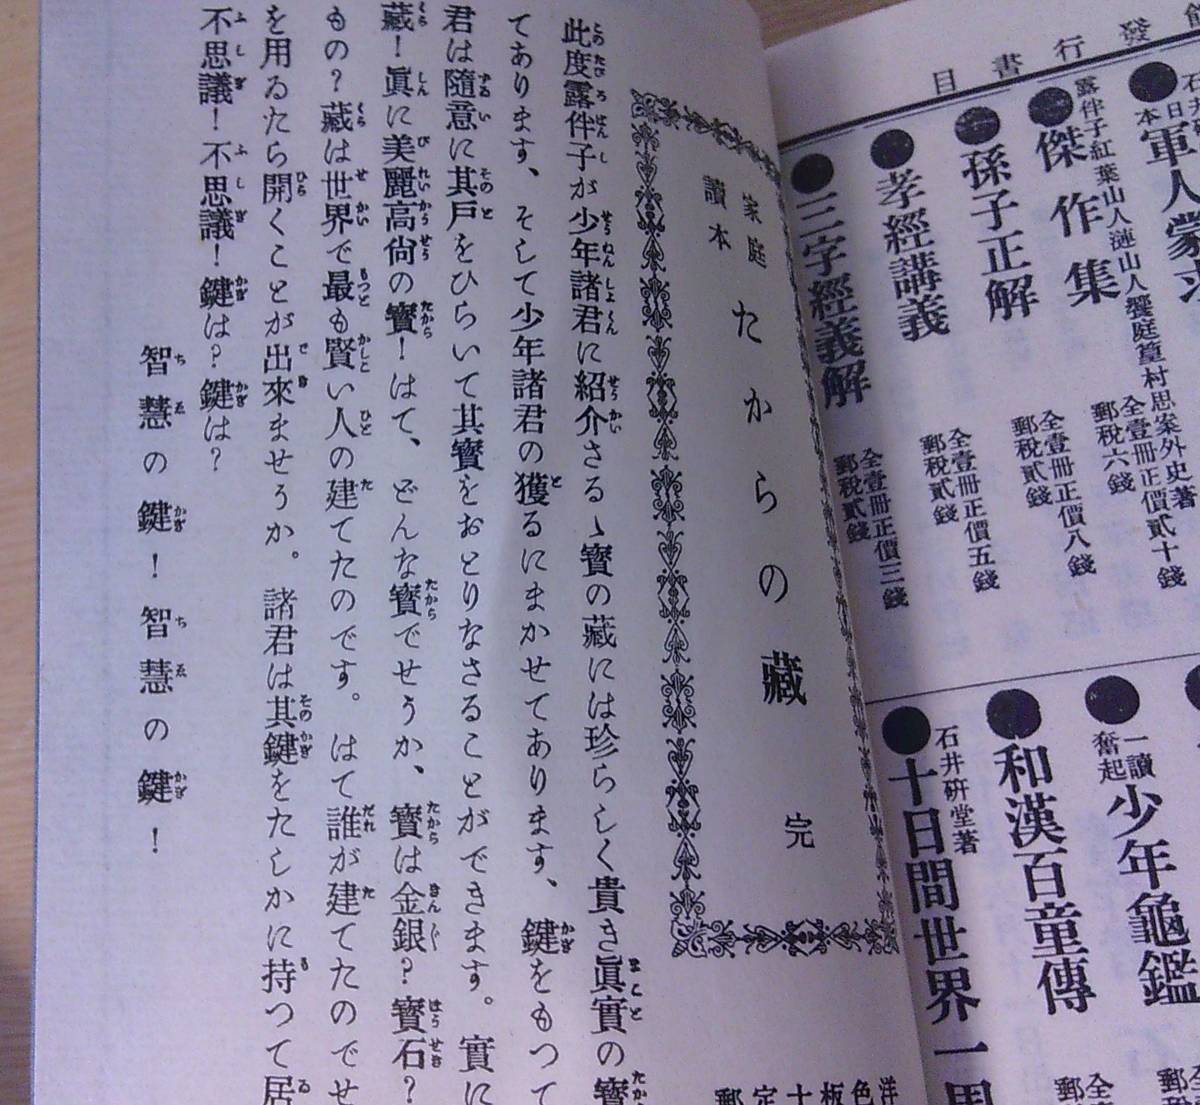 發行書目
石井
日本
軍人蒙求
露伴子紅葉山人漣山人饗庭篁村思案外史著
●傑作集
全壹冊正價貳十錢
郵稅六錢
●孫子正解
全壹冊正價八錢
郵稅貳錢
●孝經講義
全壹冊正價五錢
郵稅貳錢
●三字經義解
全壹冊正價三錢
郵稅貳錢
一讀
奮起
●少年龜鑑
●和漢百童傳
石井硏堂著
●十日間世界一周
全
郵
家庭
讀本
たからの藏
完
洋
色
板
十
定
郵
此度露伴子が少年諸君に紹介さるゝ寳の藏には珍らしく貴き眞實の寳
てあります、そして少年諸君の獲るにまかせてあります、鍵をもつて
君は隨意に其戸をひらいて其寳をおとりなさることができます。實に
藏！眞に美麗高尙の寳！はて、どんな寳でせうか、寳は金銀？寳石？
もの？藏は世界で最も賢い人の建てたのです。はて誰が建てたのでせ
を用ゐたら開くことが出來ませうか。諸君は其鍵をたしかに持つて居
不思議！不思議！鍵は？鍵は？
智慧の鍵！智慧の鍵！